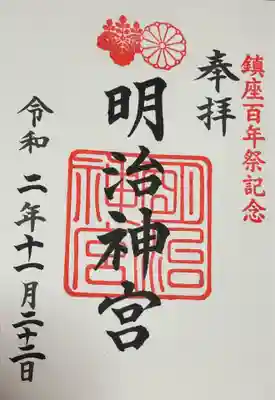 鎮座百年祭記念
奉拝
明治神宮
明治神宮
令和二年十一月二十二日